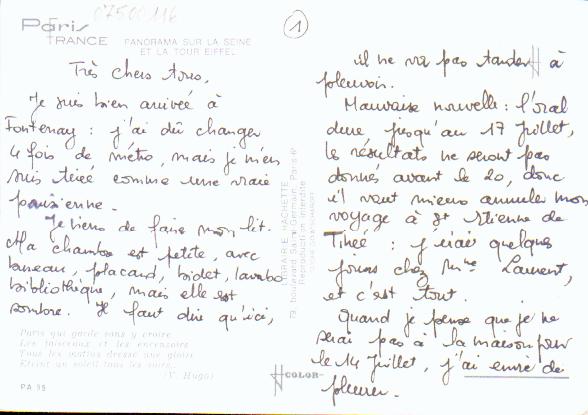 07500116
Paris
FRANCE
PANORAMA SUR LA SEINE
ET LA TOUR EIFFEL
1
Très chers tous,
Je suis bien arrivée à
Fontenay : j'ai dû changer
4 fois de métro, mais je m'en
suis tirée comme une vraie
parisienne.
Je viens de faire mon lit.
Ma chambre est petite, avec
bureau, placard, bidet, lavabo
bibliothèque, mais elle est
sombre. Il faut dire qu'ici,
Paris qui garde sans y croire
Les faisceaux et les encensoirs
Tous les matins dresse une gloire
Eteint un soleil tous les soirs
(V. Hugo)
PA 95
HACHETTE
79, boulevard Saint-Germain, Paris 6e
Reproduction interdite
COLOR
il ne va pas tarder à
pleuvoir.
Mauvaise nouvelle : l'oral
dure jusqu'au 17 juillet,
les résultats ne seront pas
donnés avant le 20, donc
il vaut mieux annuler mon
voyage à St Etienne de
Tinée : j'irai quelques
jours chez Mme Laurent,
et c'est tout.
Quand je pense que je ne
serai pas à la maison pour
le 14 juillet, j'ai envie de
pleurer.